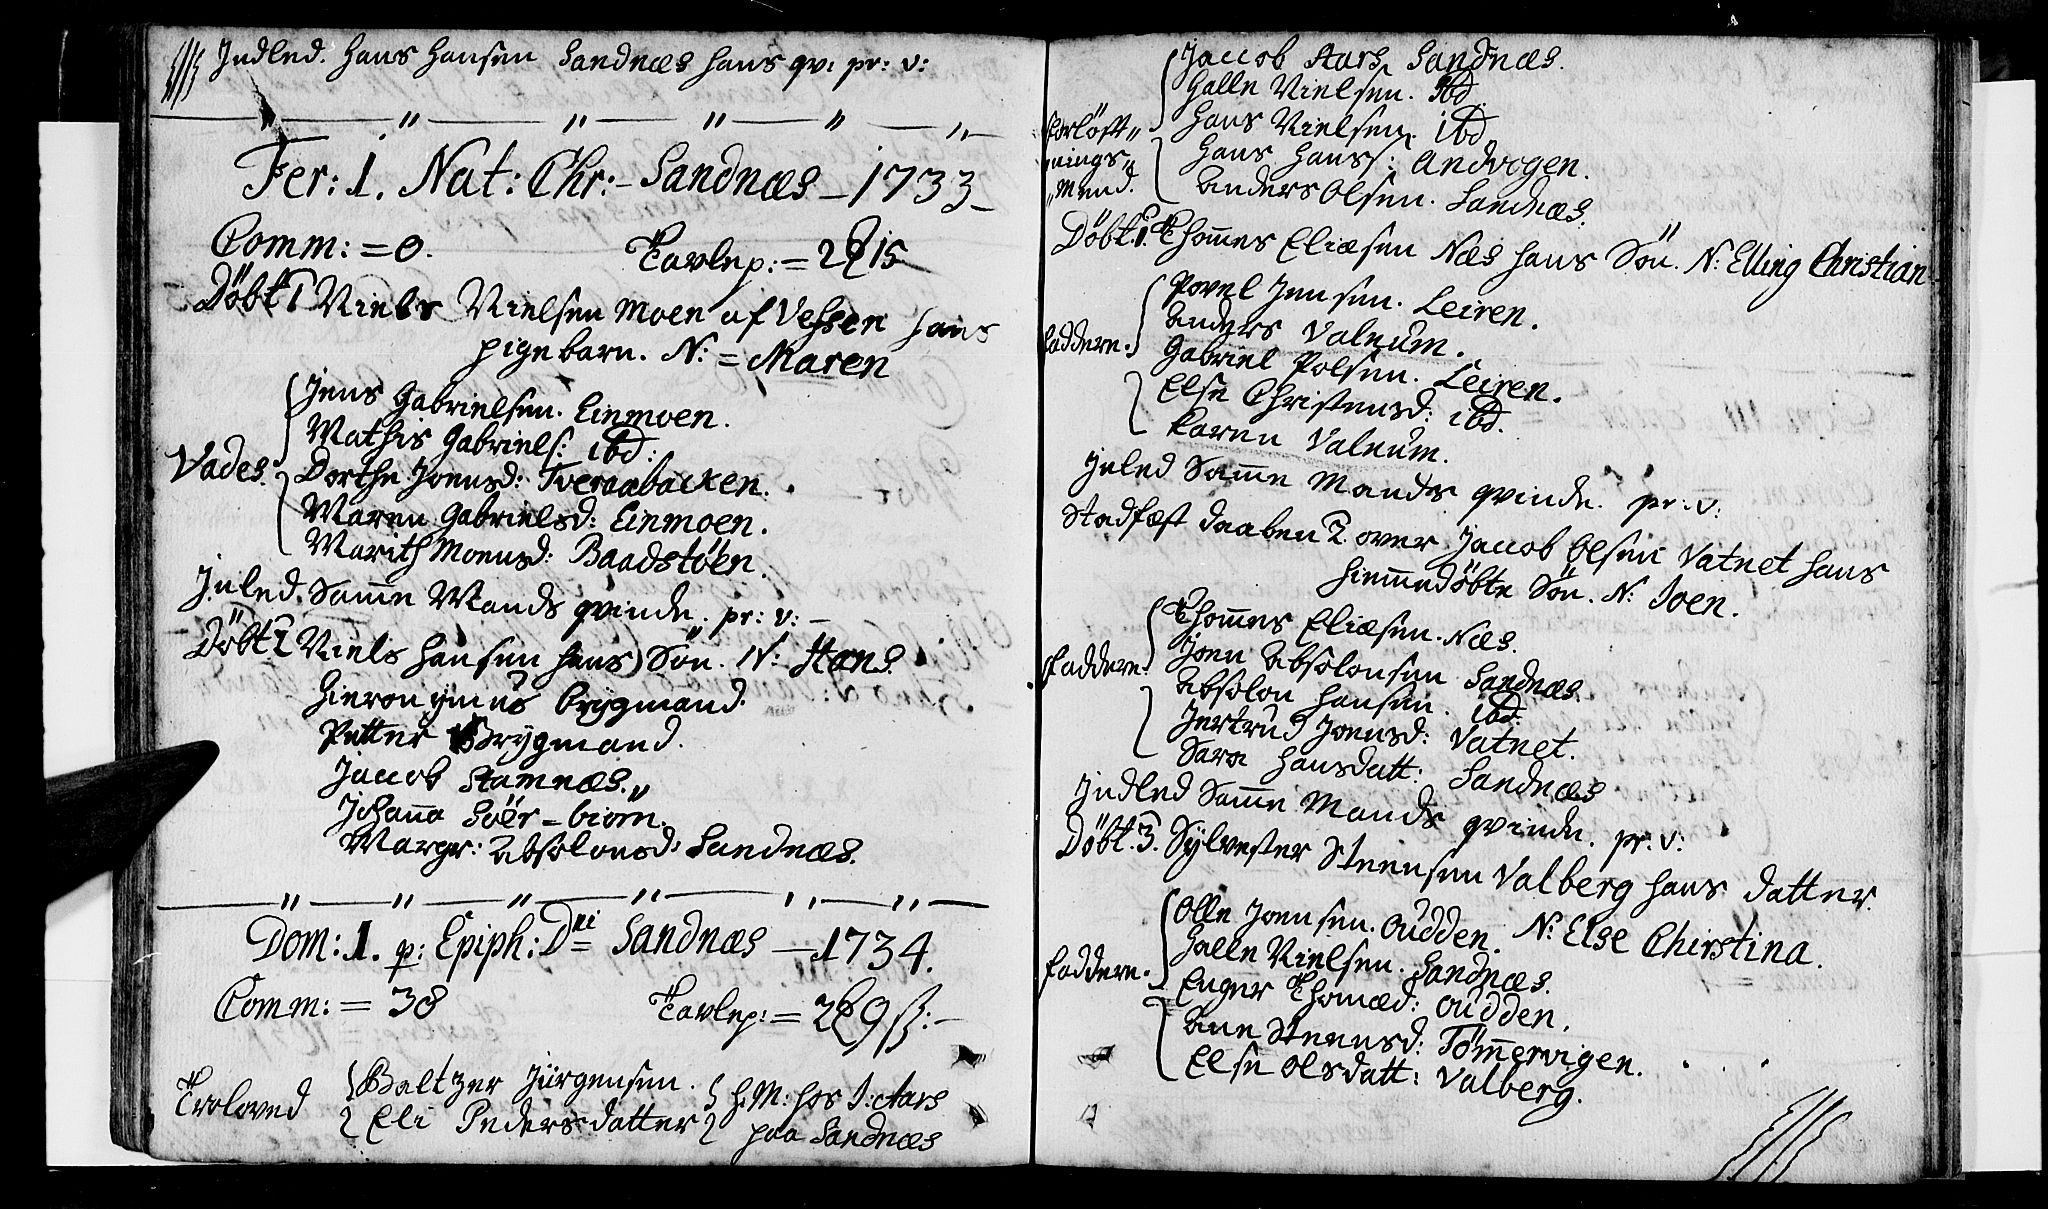 Indled. Hans Hansen Sandnæs hans qv: pr: v:
Fer: 1. Nat: Chr: - Sandnæs - 1733
Comm: = 0. Tavlep: = 2 15
Döbt 1 Niels Nielsen Moen af Vefsen hans
pigebarn. N: = Maren
Jens Gabrielsen. Einmoen.
Mathis Gabriels: ibd:
Vades. Dorthe Joensd: Tveraabacken.
Maren Gabrielsd: Einmoen.
Marith Moensd: Baadstöen.
Inled. Samme Mands qvinde. pr: v: -
Döbt 2 Niels Hansen hans Sön. N: Hans.
Hieronymus Brygmand.
Petter Brygmand.
Jacob Stamnæs.
Johanna Söer-biom.
Margr: Absolonsd: Sandnæs.
Dom: 1. p: Epiph: Dni Sandnæs - 1734.
Comm: = 38 Tavlep: = 2 9 ß: -
Troloved Baltzer Jürgensen. H. M: hos J: Aars
Eli Pedersdatter paa Sandnæs
Jaccob Aars, Sandnæs.
Halle Nielsen. ibd
Forlöft" Hans Nielsen, ibd
nings" Hans Hanss: Andvogen.
"Mend. Anders Olsen. Sandnæs.
Döbt. 1. Thommes Eliæsen Næs hans Sön. N: Elling Christian
Povel Jensen. Leiren.
Anders Valnum.
Faddere. Gabriel Polsen. Leiren.
Else Christensd: ibd.
Karen Valnum.
Inled Samme Mands qvinde. pr: v:
Stadfæst daaben 2. over Jaccob Olsen Vatnet hans
hiemmedöbte Sön. N: Joen.
Thommes Eliæsen. Næs.
Faddere. Joen Absolonsen Sandnæs.
Absolon Hansen. ibd.
Jertrud Joensd: Vatnet.
Sara Hansdatt: Sandnæs
Indled Samme Mands qvinde. pr: v:
Döbt. 3. Sylvester Steensen Valberg hans datter.
Olle Joensen. Oudden. N: Else Chirstina.
Halle Nielsen. Sandnæs.
Faddere. Inger Thomæd: Oudden,
Ane Steensd: Tömmervigen.
Else Olsdatt: Valberg.